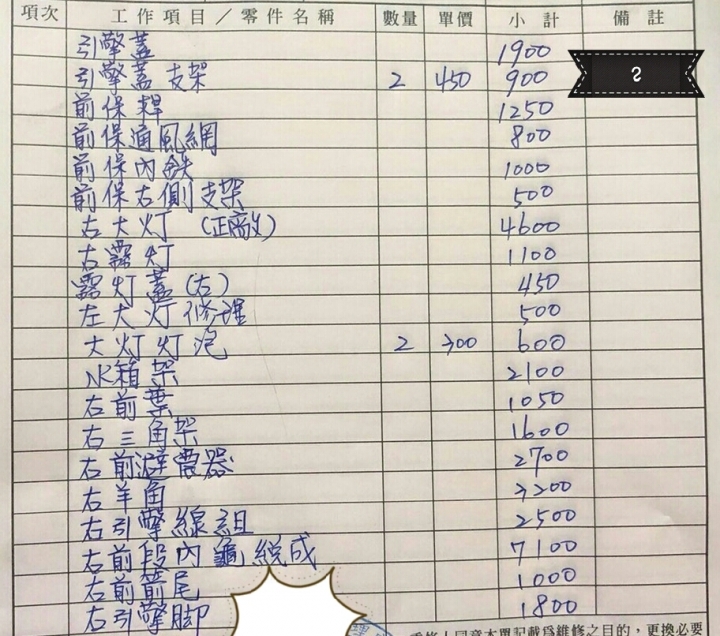 項次 工作項目／零件名稱 數量 單價 小計 備註
引擎蓋 1900
引擎蓋支架 2 450 900
2
前保桿 1250
前保通風網 800
前保內鉄 1000
前保右側支架 500
右大灯 (正廠) 4600
右霧灯 1100
霧灯蓋(右) 450
左大灯修理 500
大灯灯泡 2 300 600
水箱架 2100
右前葉 1050
右三角架 1600
右前避震器 2700
右羊角 3200
右引擎線組 2500
右前段內龜總成 7100
右前箭尾 1000
右引擎脚 1800
本單記載爲維修之目的，更換必要